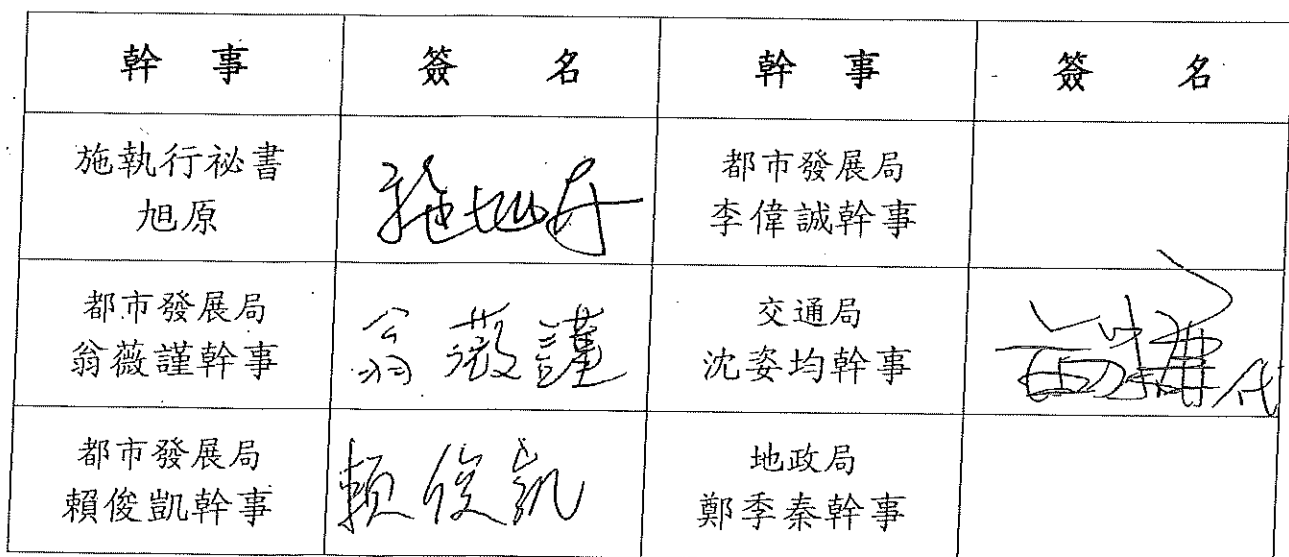 幹 事 簽 名 幹 事 簽 名
施執行祕書
旭原
施旭原
都市發展局
李偉誠幹事
都市發展局
翁薇謹幹事
翁薇謹
交通局
沈姿均幹事
代
都市發展局
賴俊凱幹事
賴俊凱
地政局
鄭季秦幹事